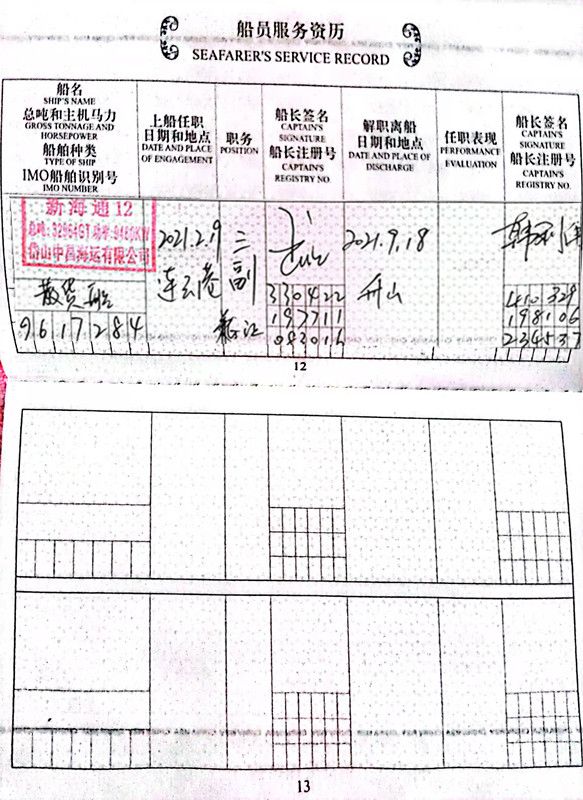 船员服务资历
SEAFARER'S SERVICE RECORD
船名
SHIP'S NAME
总吨和主机马力
GROSS TONNAGE AND
HORSEPOWER
船舶种类
TYPE OF SHIP
IMO船舶识别号
IMO NUMBER
上船任职
日期和地点
DATE AND PLACE
OF ENGAGEMENT
职务
POSITION
船长签名
CAPTAIN'S
SIGNATURE
船长注册号
CAPTAIN'S
REGISTRY NO.
解职离船
日期和地点
DATE AND PLACE OF
DISCHARGE
任职表现
PERFORMANCE
EVALUATION
船长签名
CAPTAIN'S
SIGNATURE
船长注册号
CAPTAIN'S
REGISTRY NO.
新海通12
岱山中昌海运有限公司
散货船
9617284
2021.2.19
连云港
三
副
330422
197711
083016
2021.9.18
舟山
410329
198106
234537
12
13